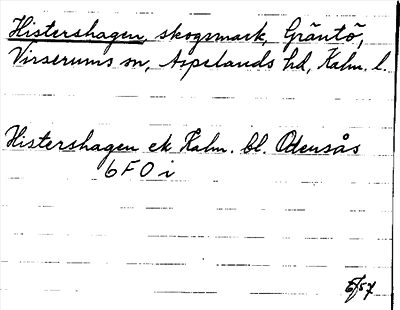 Histershagen, skogsmark, Gräntö,
Virserums sn, Aspelands hd, Kalm. l.
Histershagen ek Kalm. bl. Odensås
6 F O i
E/57